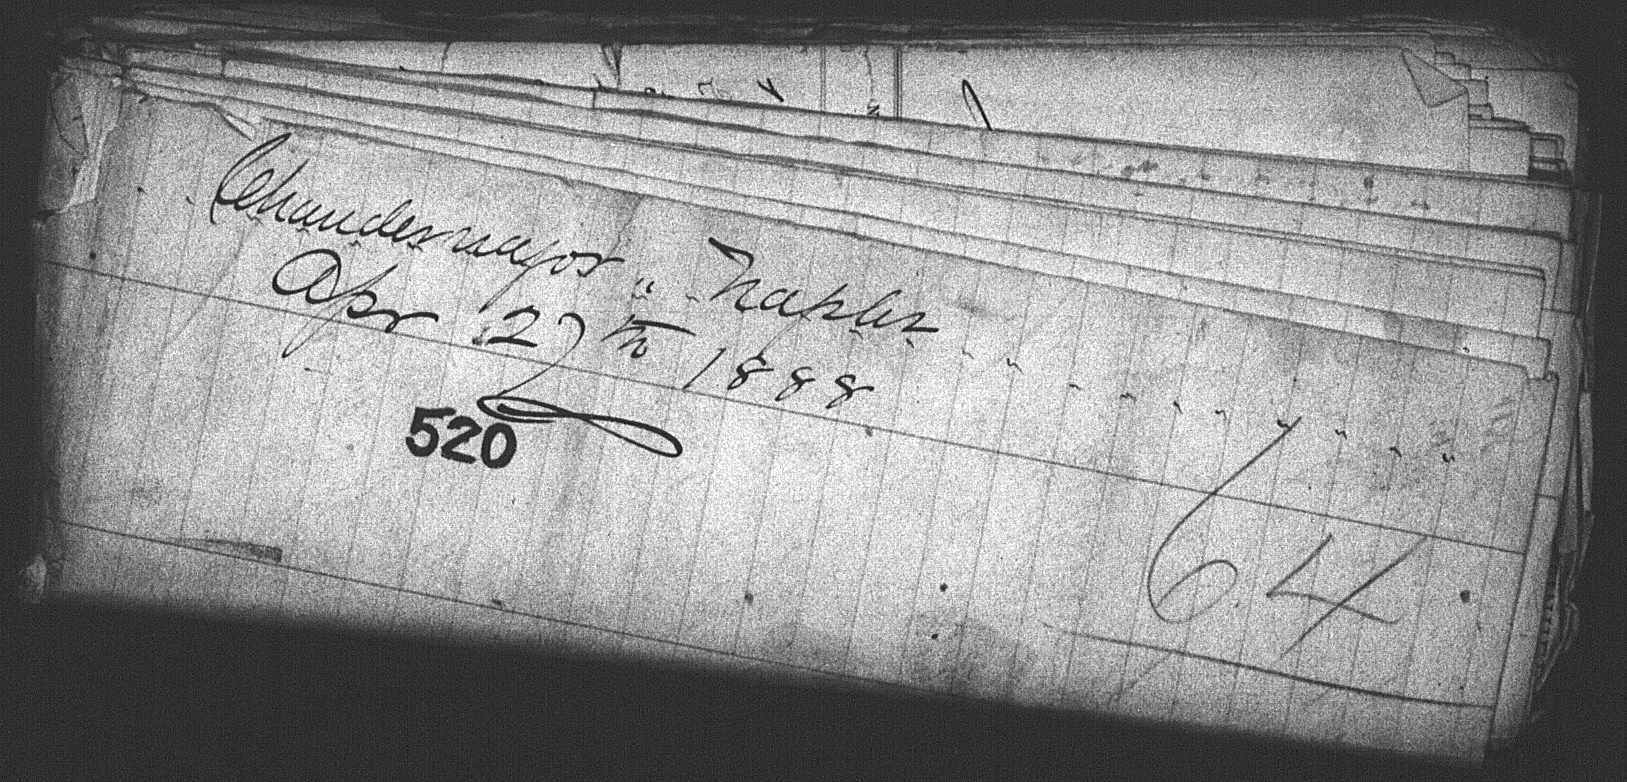 Chandernagor, Naples
Apr 27th 1888
520
64